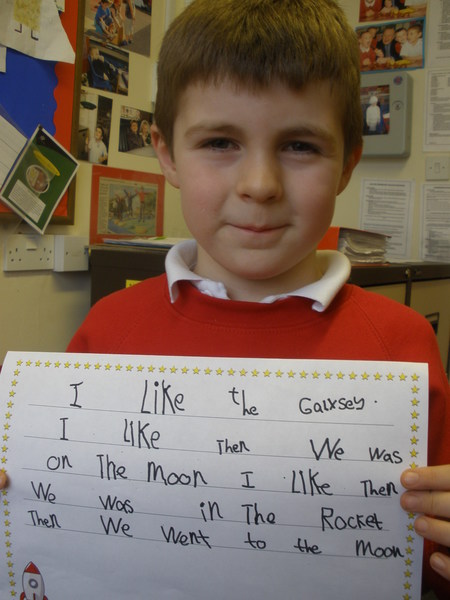 I Like the Galxsey.
I Like Then We was
on The moon I Like Then
We was in The Rocket
Then We Went to the moon